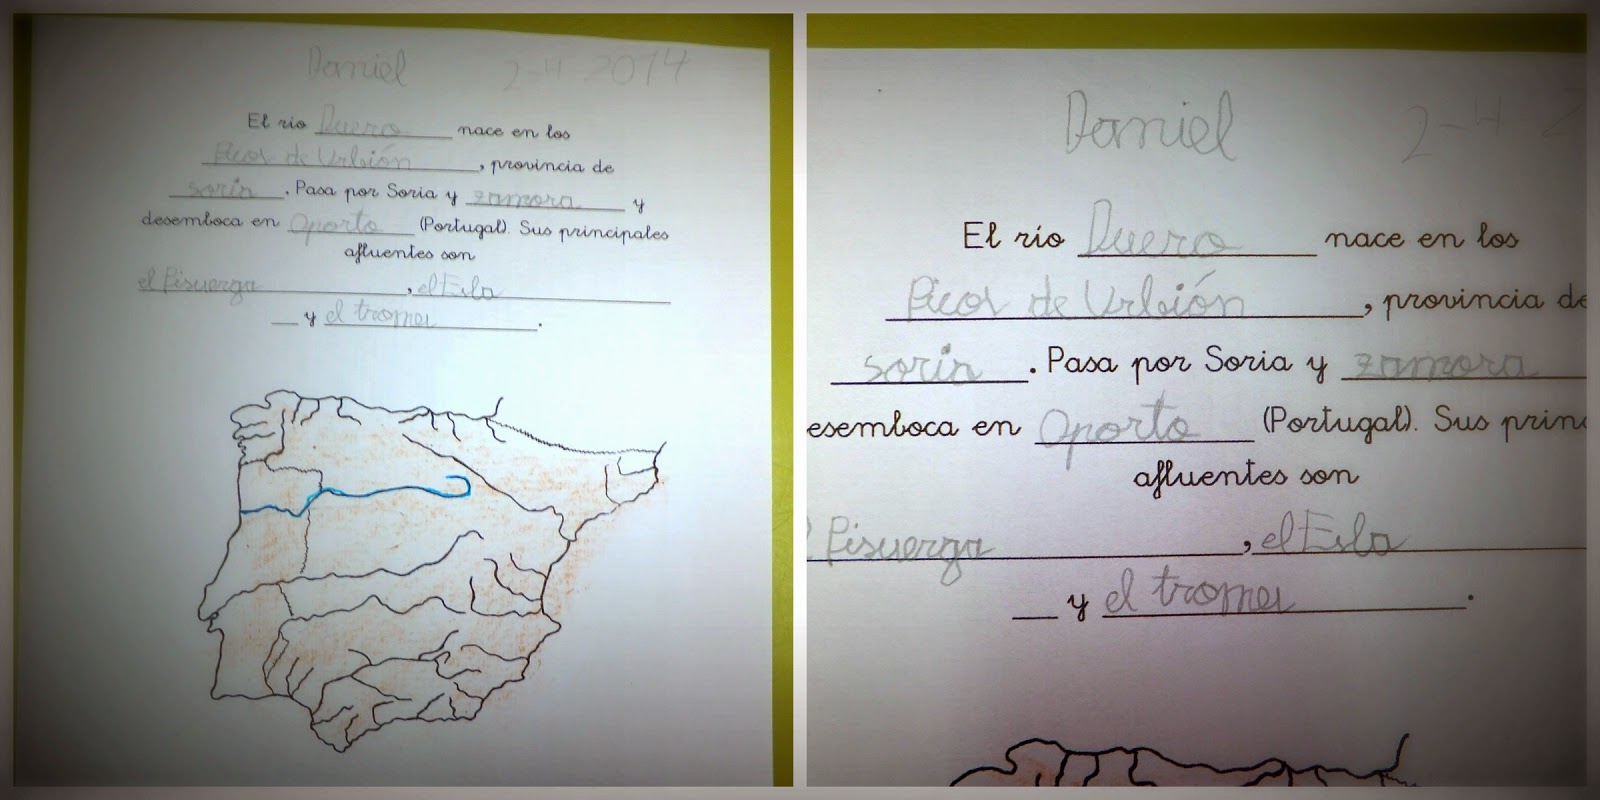 Daniel 2-4 2014
El río Duero nace en los
Picos de Urbión, provincia de
soria. Pasa por Soria y zamora y
desemboca en oporto (Portugal). Sus principales
afluentes son
el Pisuerga, el Esla
__ y el tromes.
Daniel 2-4 2
El río Duero nace en los
Picos de Urbión, provincia de
soria. Pasa por Soria y zamora
esemboca en oporto (Portugal). Sus prin
afluentes son
l Pisuerga, el Esla
__ y el tromes.